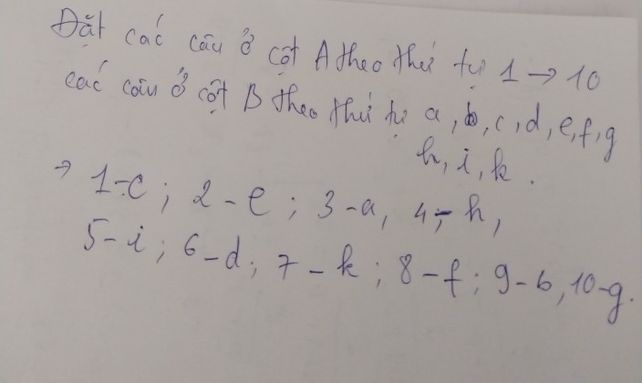 Đặt các câu ở cột A theo thứ tự 1 → 10
các câu ở cột B theo thứ tự a, b, c, d, e, f, g
h, i, k.
→ 1-c; 2-e; 3-a, 4-h,
5-i; 6-d; 7-k; 8-f; 9-b, 10-g.